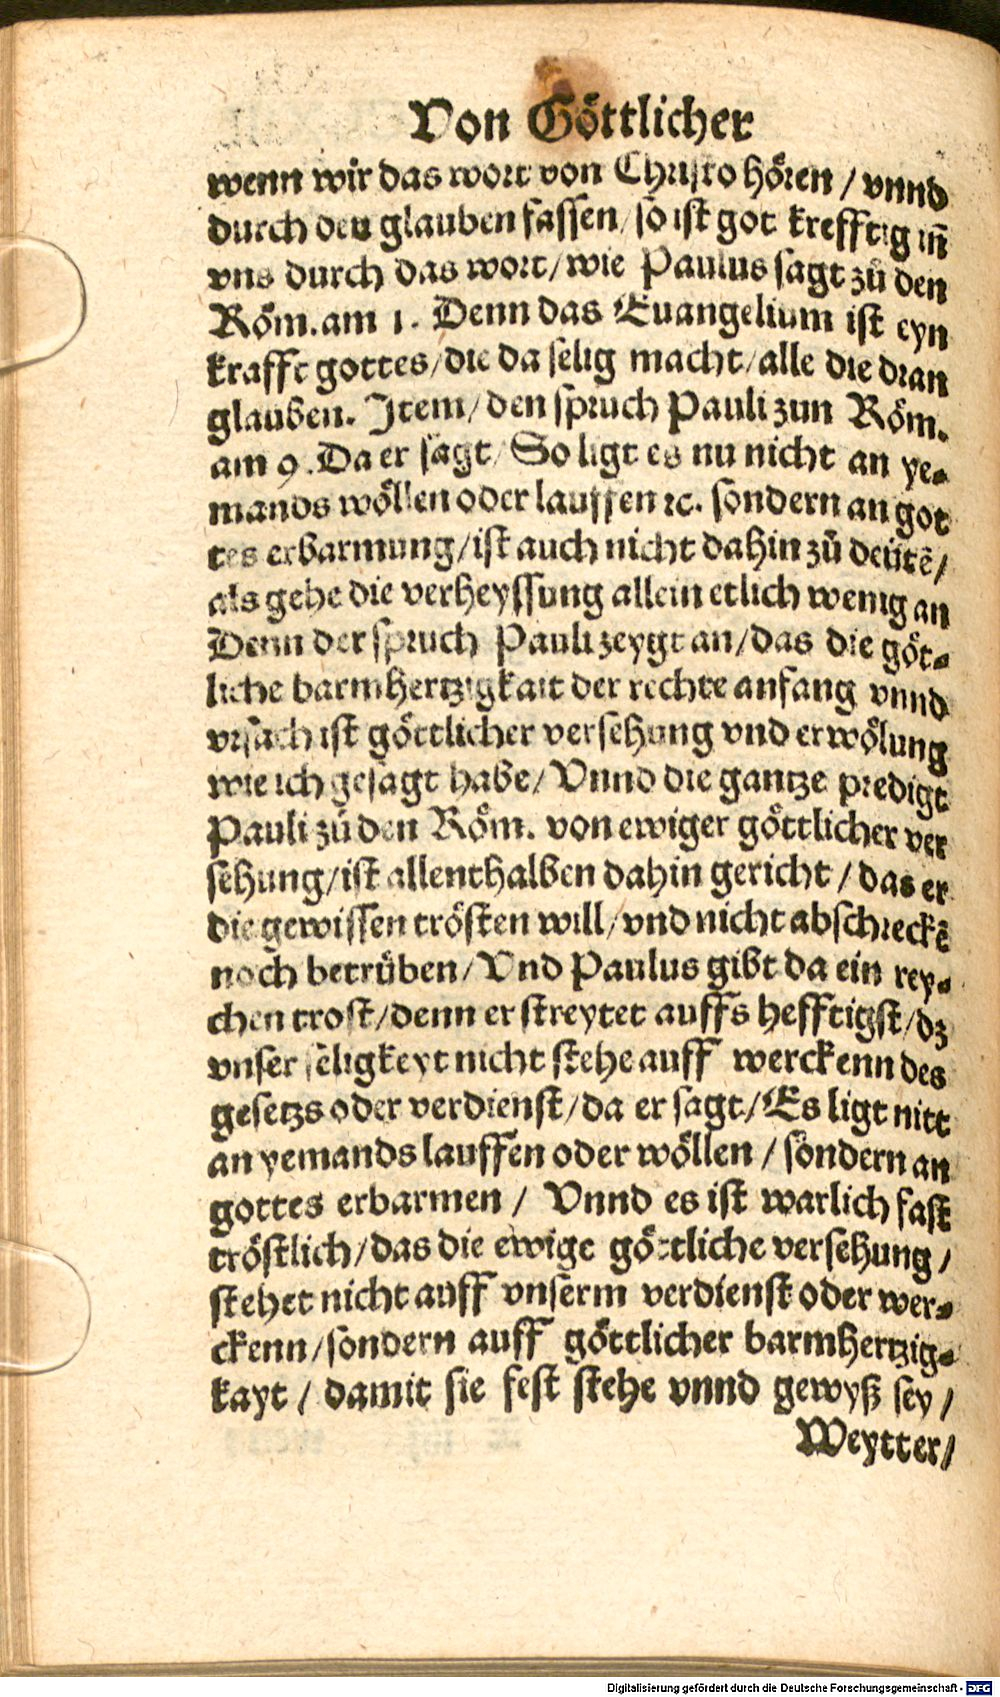 Von Göttlicher
wenn wir das wort von Christo hören / vnnd
durch den glauben fassen / so ist got krefftig in̄
vns durch das wort / wie Paulus sagt zů den
Röm. am 1. Denn das Euangelium ist eyn
krafft gottes / die da selig macht / alle die dran
glauben. Item / den spruch Pauli zun Röm.
am 9. Da er sagt / So ligt es nu nicht an ye⸗
mands wöllen oder lauffen ꝛc. sondern an got
tes erbarmung / ist auch nicht dahin zů deütē /
als gehe die verheyssung allein etlich wenig an
Denn der spruch Pauli zeygt an / das die göt⸗
liche barmhertzigkait der rechte anfang vnnd
vrsach ist göttlicher versehung vnd erwölung
wie ich gesagt habe / Vnnd die gantze predigt
Pauli zů den Röm. von ewiger göttlicher ver
sehung / ist allenthalben dahin gericht / das er
die gewissen trösten will / vnd nicht abschreckē
noch betrüben / Vnd Paulus gibt da ein rey⸗
chen trost / denn er streytet auffs hefftigst / dz
vnser seligkeyt nicht stehe auff werckenn des
gesetzs oder verdienst / da er sagt / Es ligt nitt
an yemands lauffen oder wöllen / sondern an
gottes erbarmen / Vnnd es ist warlich fast
tröstlich / das die ewige göttliche versehung /
stehet nicht auff vnserm verdienst oder wer⸗
ckenn / sondern auff göttlicher barmhertzig⸗
kayt / damit sie fest stehe vnnd gewyß sey /
Weytter /
Digitalisierung gefördert durch die Deutsche Forschungsgemeinschaft - DFG